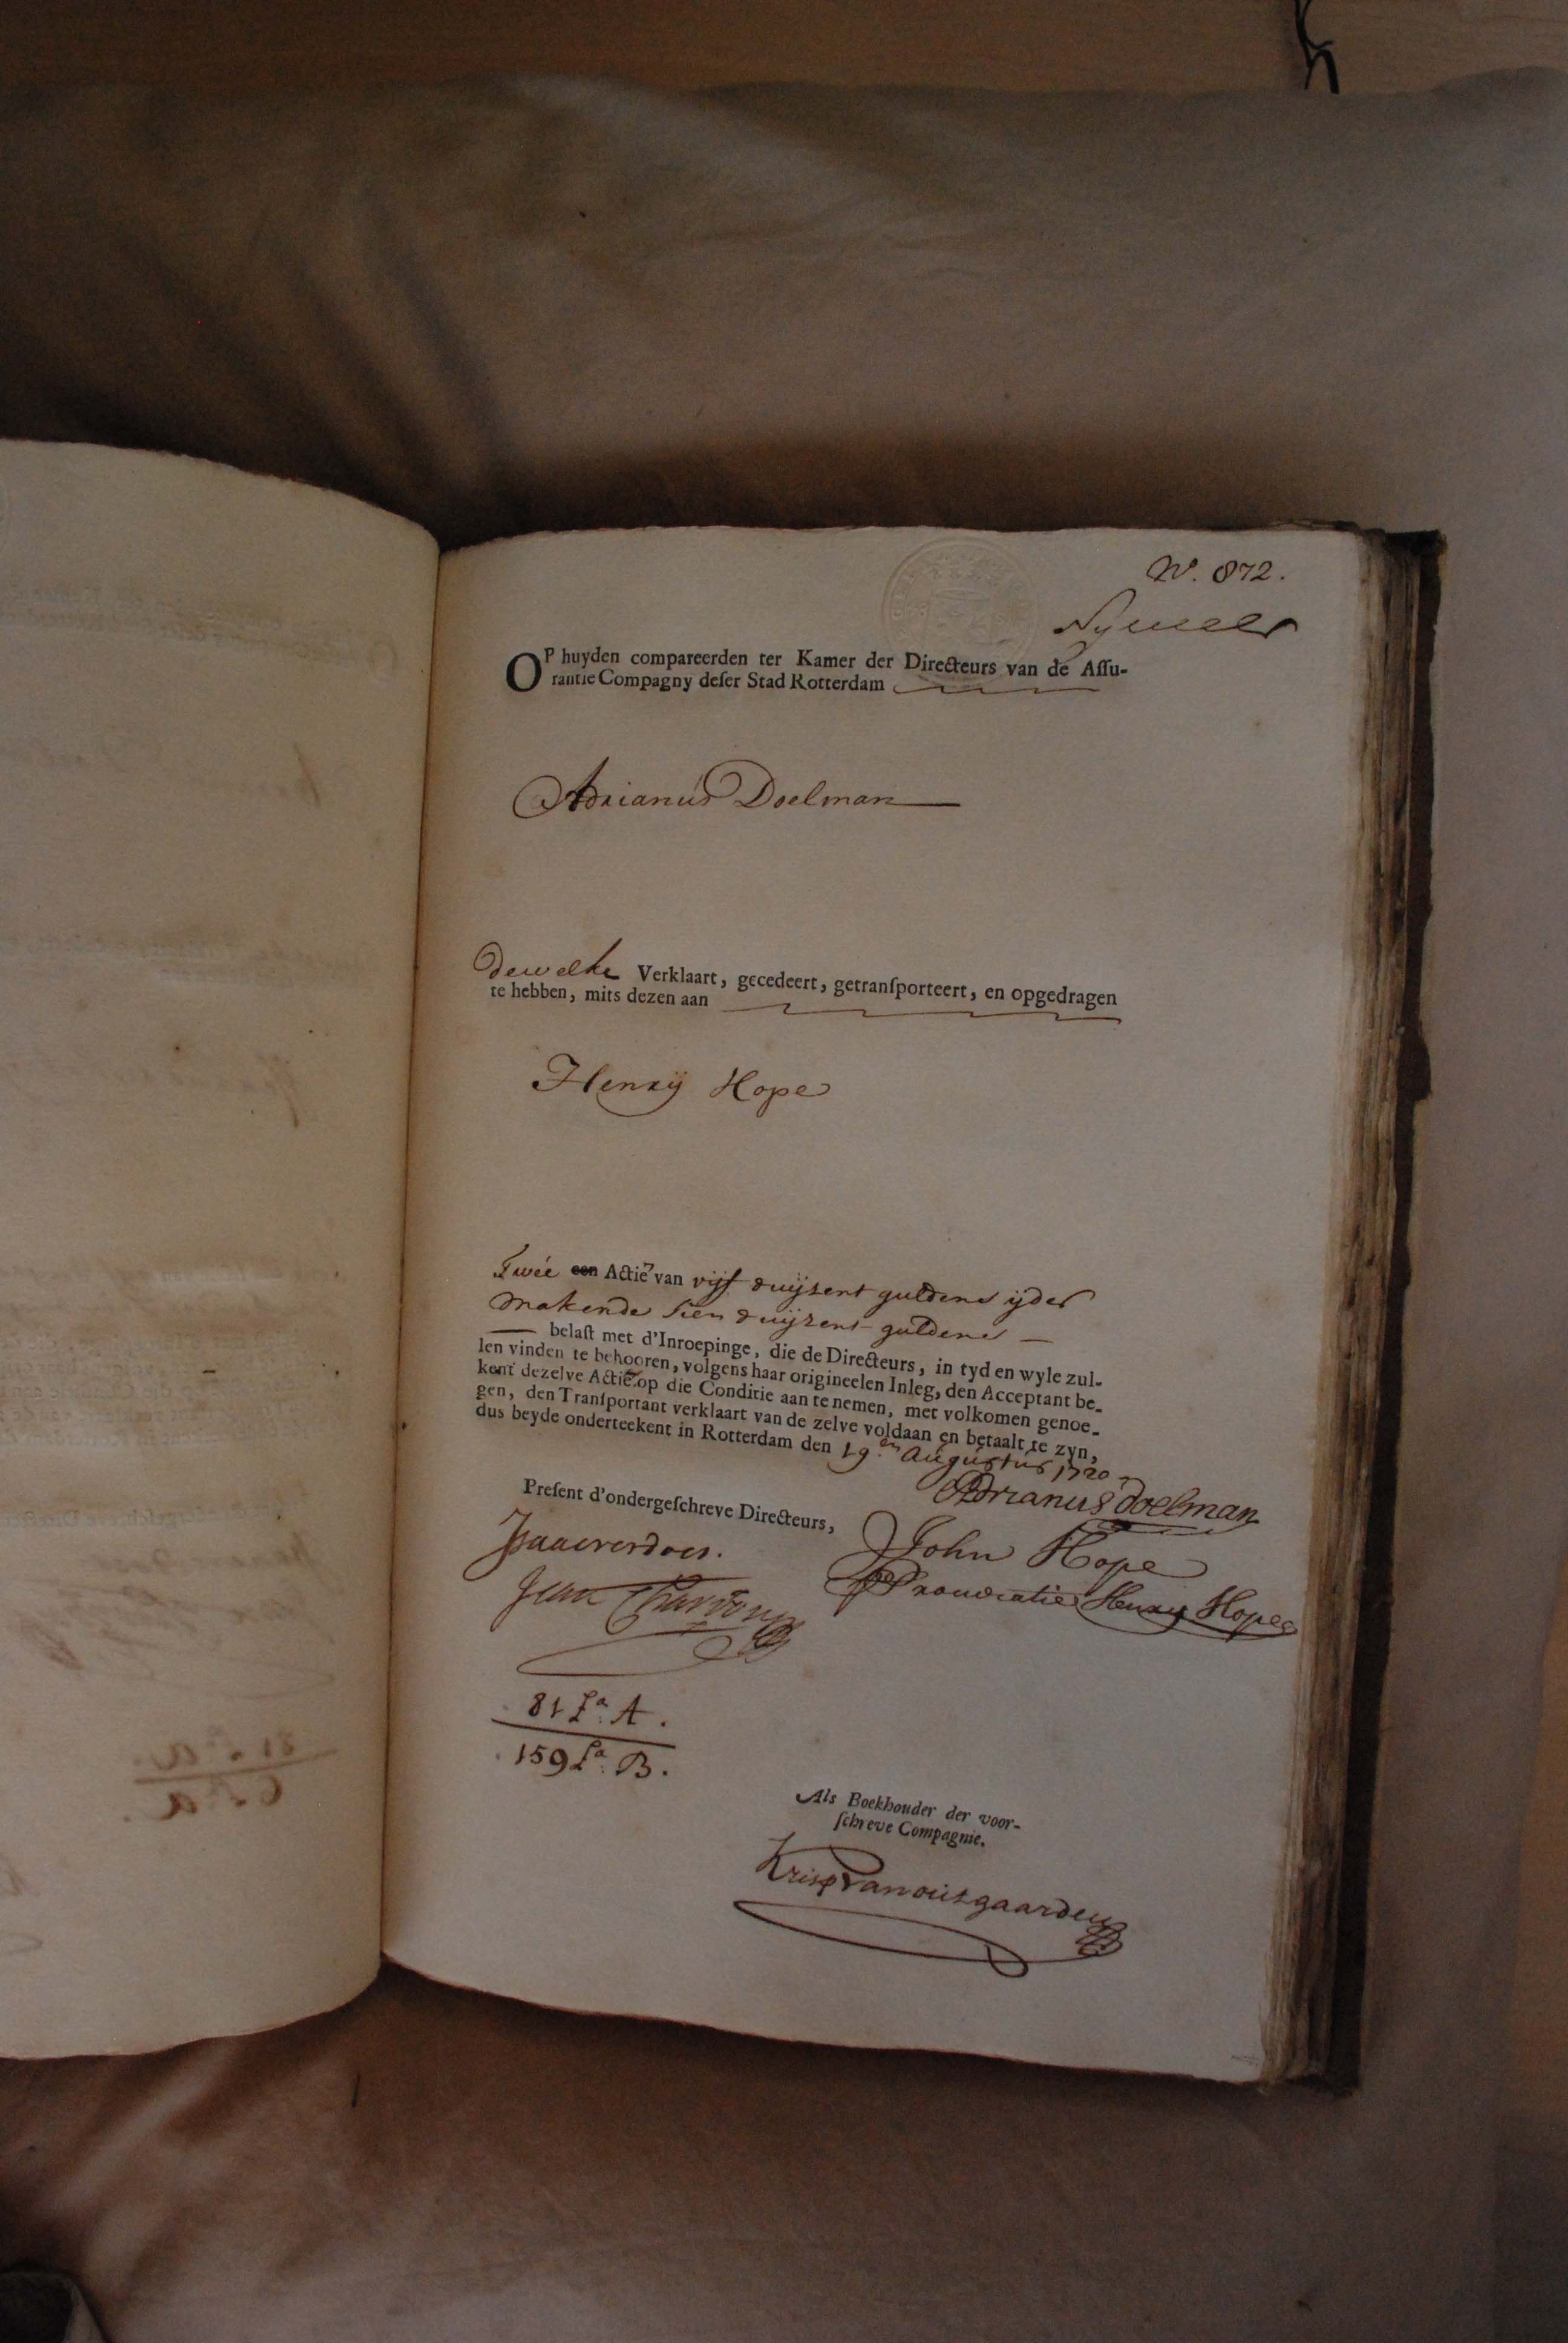 N°. 872.
OP huyden compareerden ter Kamer der Directeurs van de Aſſu-
rantie Compagny deſer Stad Rotterdam
Adrianus Doelman
Dewelke Verklaart, gecedeert, getranſporteert, en opgedragen
te hebben, mits dezen aan
Henrij Hope
Twee een Actie van vijf duijsent guldens ijder
makende tien duijsent guldens
belaſt met d'Inroepinge, die de Directeurs, in tyd en wyle zul-
len vinden te behooren, volgens haar origineelen Inleg, den Acceptant be-
kent dezelve Actie op die Conditie aan te nemen, met volkomen genoe-
gen, den Tranſportant verklaart van de zelve voldaan en betaalt te zyn,
dus beyde onderteekent in Rotterdam den 19.en Augustus 1720
Adrianus Doelman
Preſent d'ondergeſchreve Directeurs,
John Hope
Henry Hope
Jean
81 La. A.
159 La. B.
Als Boekhouder der voor-
ſchreve Compagnie.